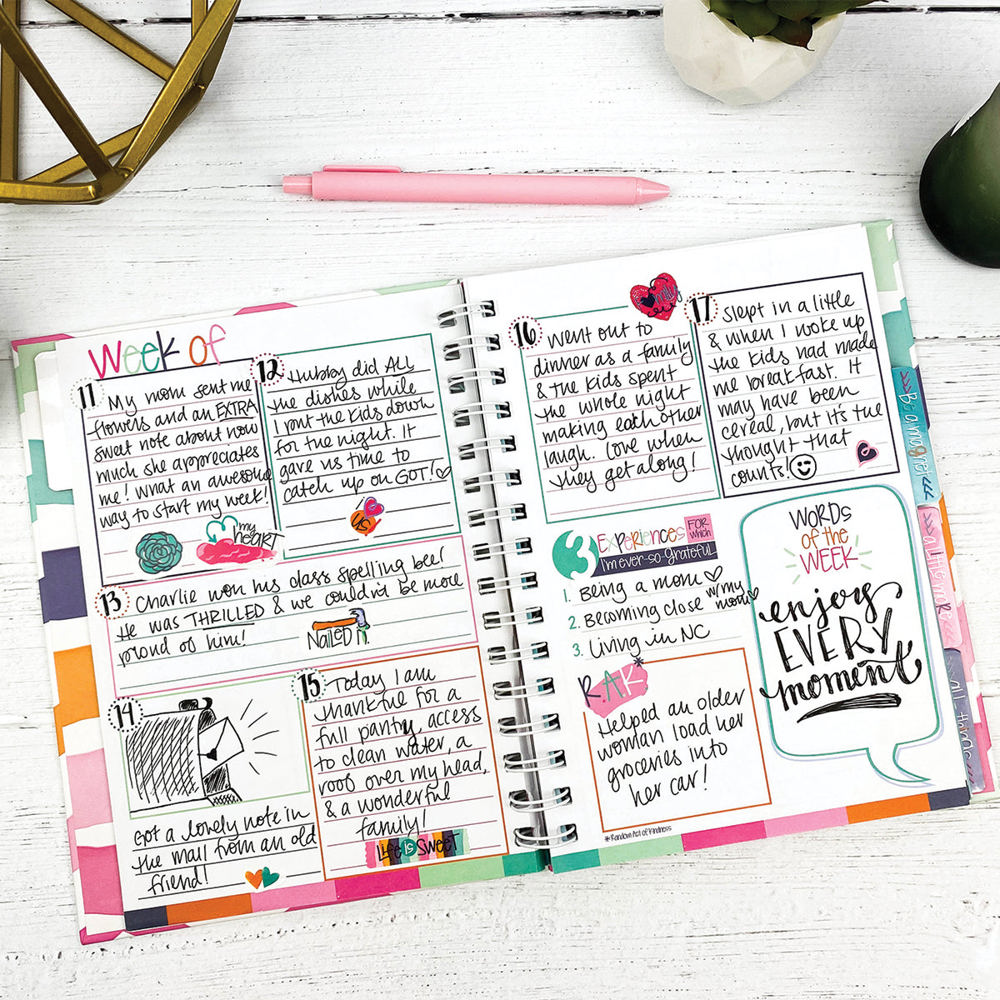 week of
11
My mom sent me
flowers and an EXTRA
sweet note about how
much she appreciates
me! What an awesome
way to start my week!
my
heart
12
Hubby did ALL
the dishes while
I put the kids down
for the night. It
gave us time to
catch up on GOT!
13
Charlie won his class spelling bee!
He was THRILLED & we couldn't be more
proud of him!
Nailed it
14
Got a lovely note in
the mail from an old
friend!
15
Today I am
thankful for a
full pantry, access
to clean water, a
roof over my head,
& a wonderful
family!
Life is Sweet
16
Family
Went out to
dinner as a family
& the kids spent
the whole night
making each other
laugh. Love when
they get along!
17
Slept in a little
& when I woke up
the kids had made
me breakfast. It
may have been
cereal, but it's the
thought that
counts!
3 Experiences FOR which
I'm ever-so-grateful
1. Being a mom
2. Becoming close w/my
mom
3. Living in NC
R.A.K*
Helped an older
woman load her
groceries into
her car!
*Random Act of Kindness
WORDS
of the
WEEK
enjoy
EVERY
moment
all things